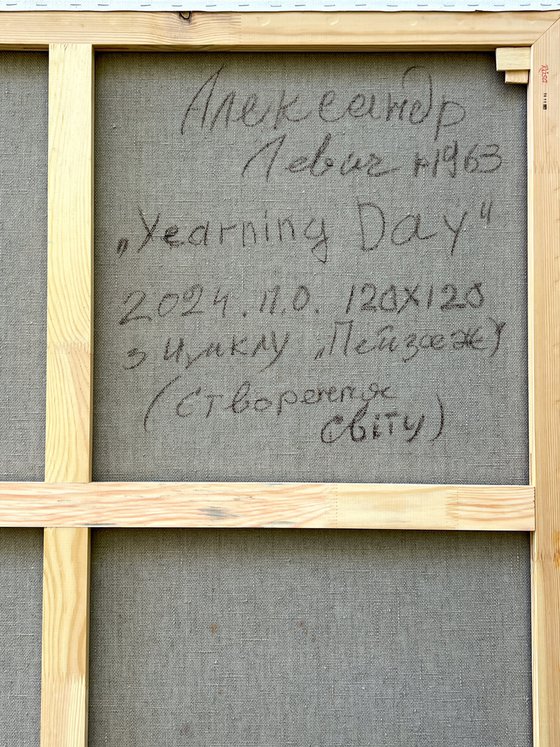 Александр
Левич н1963
„Yearning Day"
2024. п.о. 120x120
з циклу „Пейзаж"
(Створення
світу)